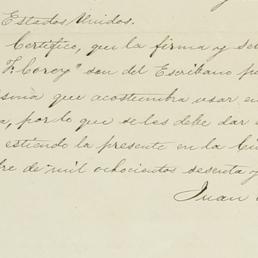 Estados Unidos.
Certifico, que la firma y se
Z. Coroy" son del Escribano pu
isma que acostumbra usar en
a, por lo que se les debe dar
estiendo la presente en la Ciu
re de mil ochocientos sesenta y
Juan